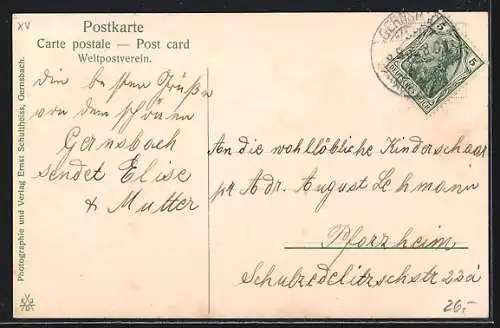 XV
Postkarte
Carte postale — Post card
Weltpostverein.
die besten Grüße
von dem schönen
Gernsbach
sendet Elise
& Mutter
An die wohllöbliche Kinderschaar
pr Adr. August Lehmann
Pforzheim
Schulzedelitzschstr 22a
26,-
Photographie und Verlag Ernst Schultheiss, Gernsbach.
GERNSB
5
5
DEUTSCHES REICH